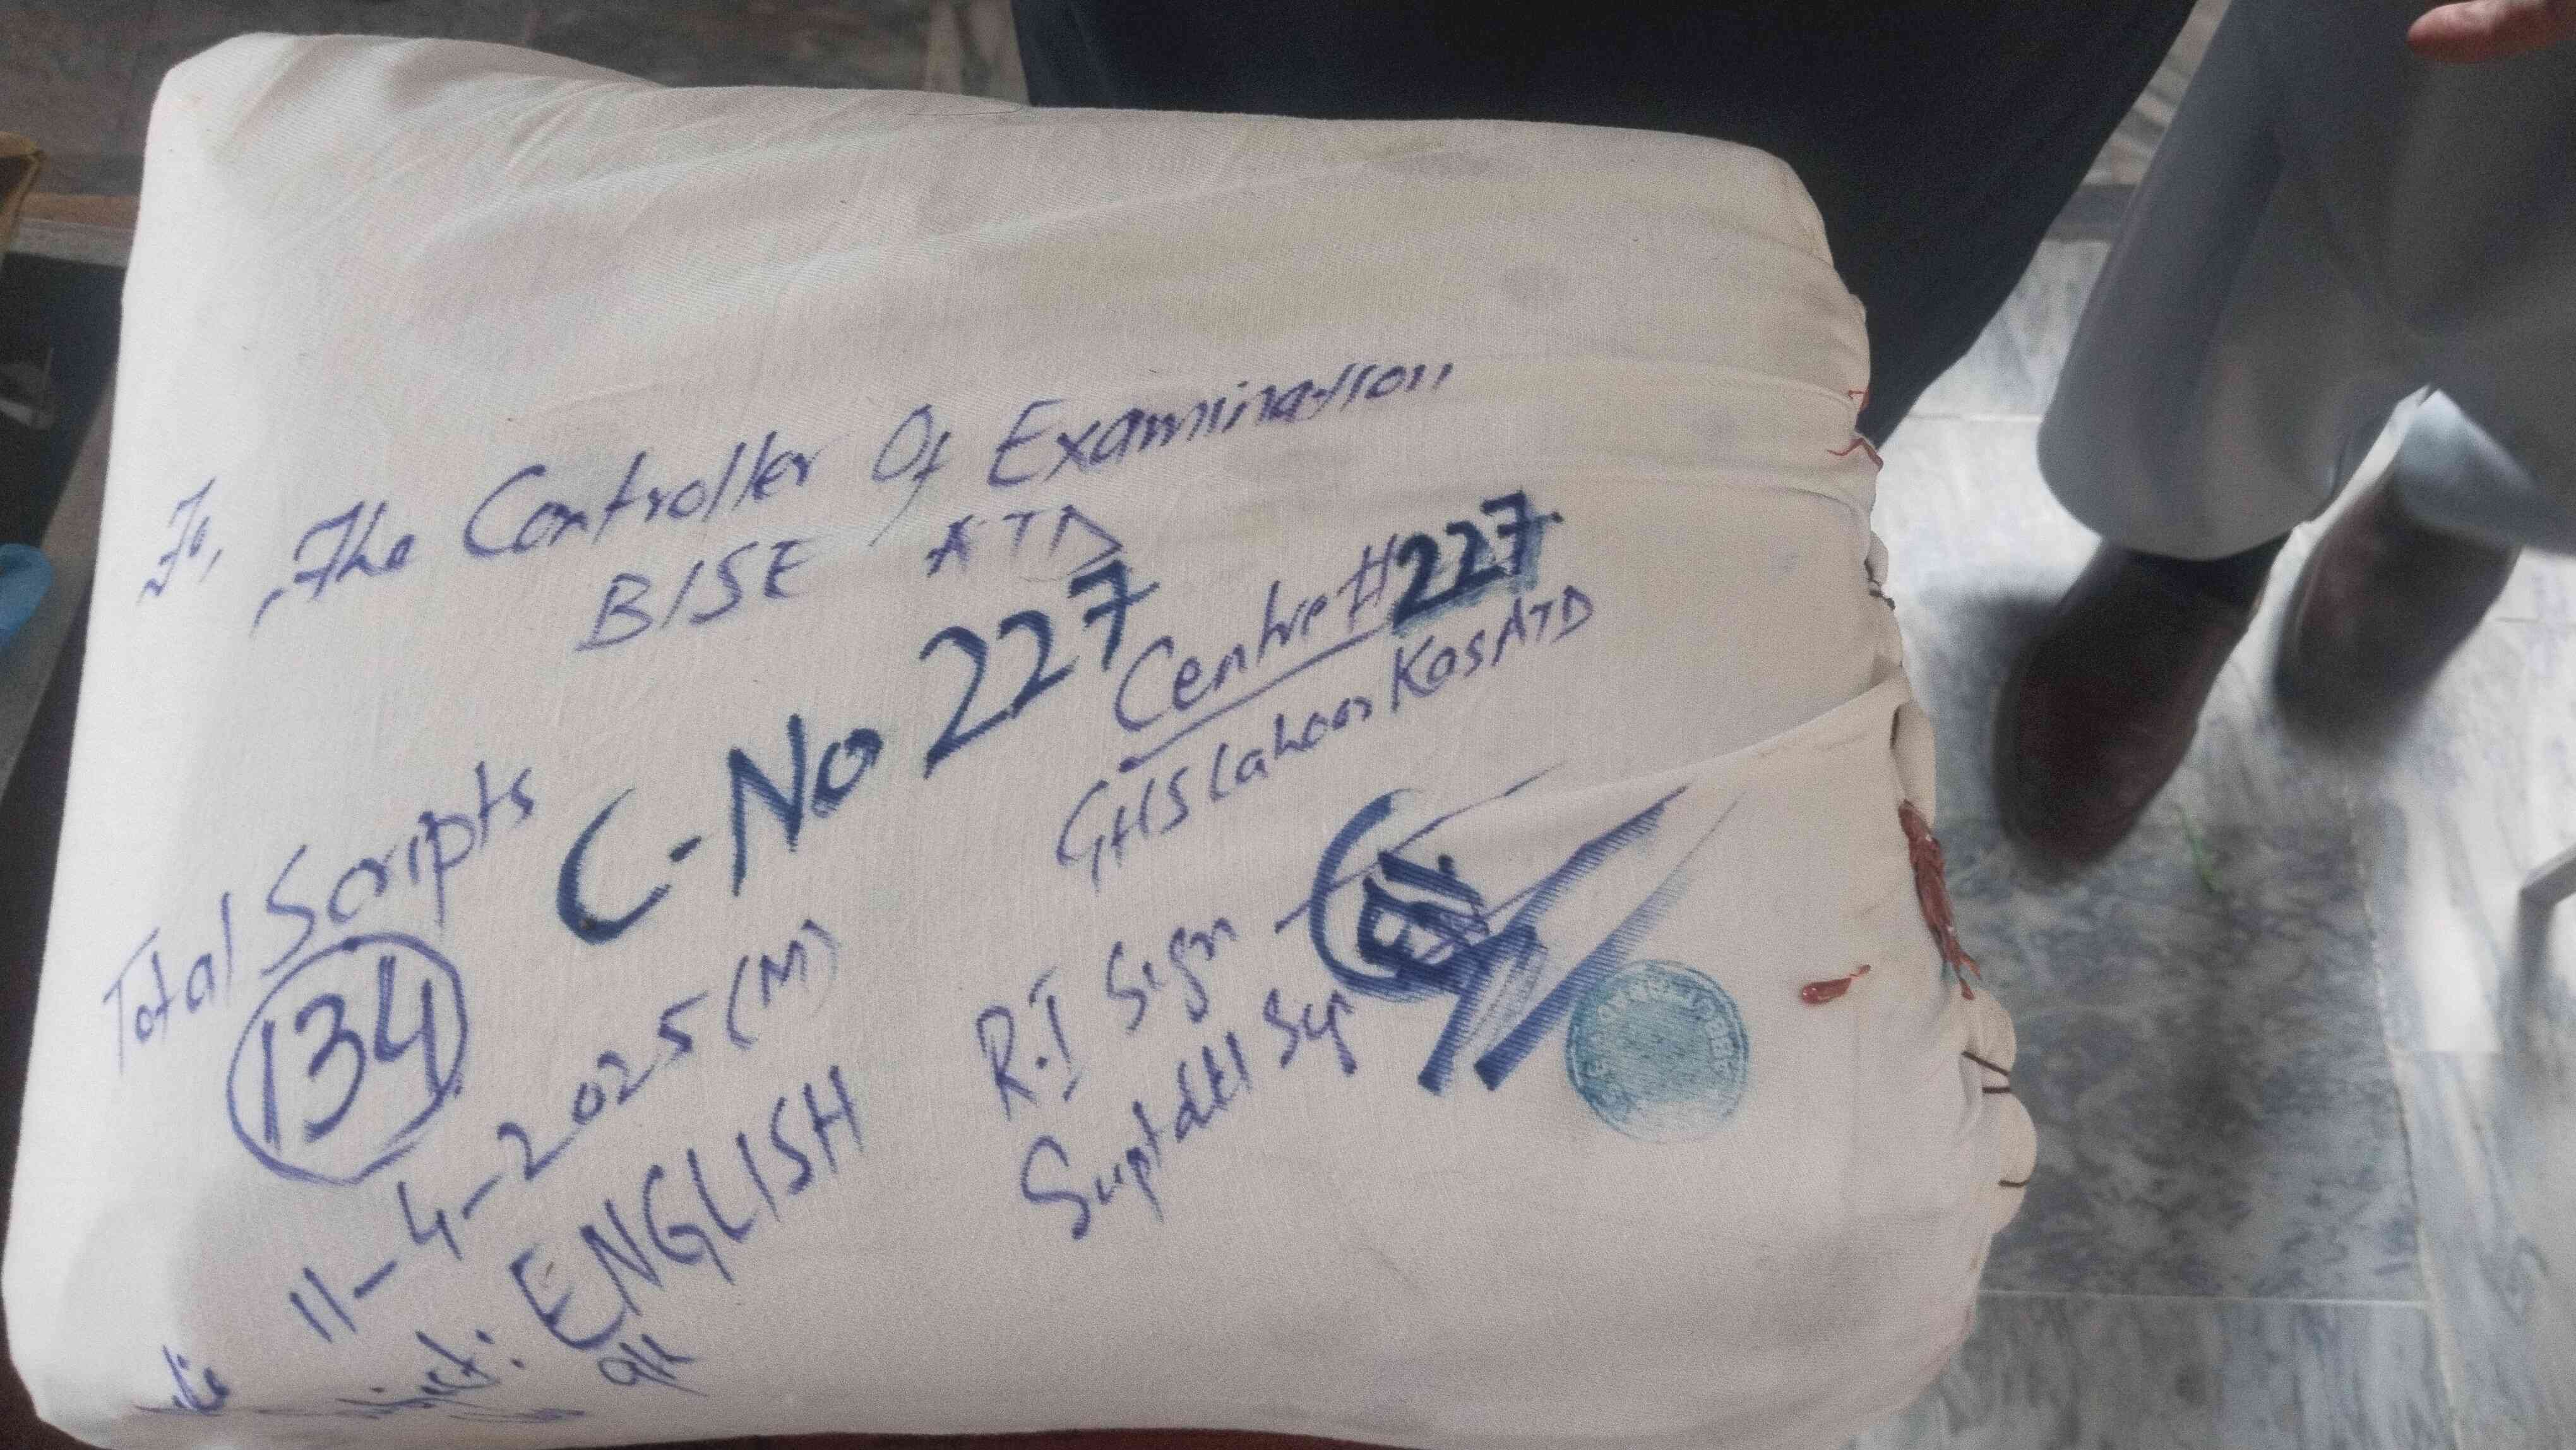 To,
The Controller Of Examination
BISE ATD
C-No 227
Centre # 227
GHS Lahoor Kos ATD
Total Scripts
134
11-4-2025 (M)
Subject: ENGLISH
9th
R.I Sign
Suptdtt Sign